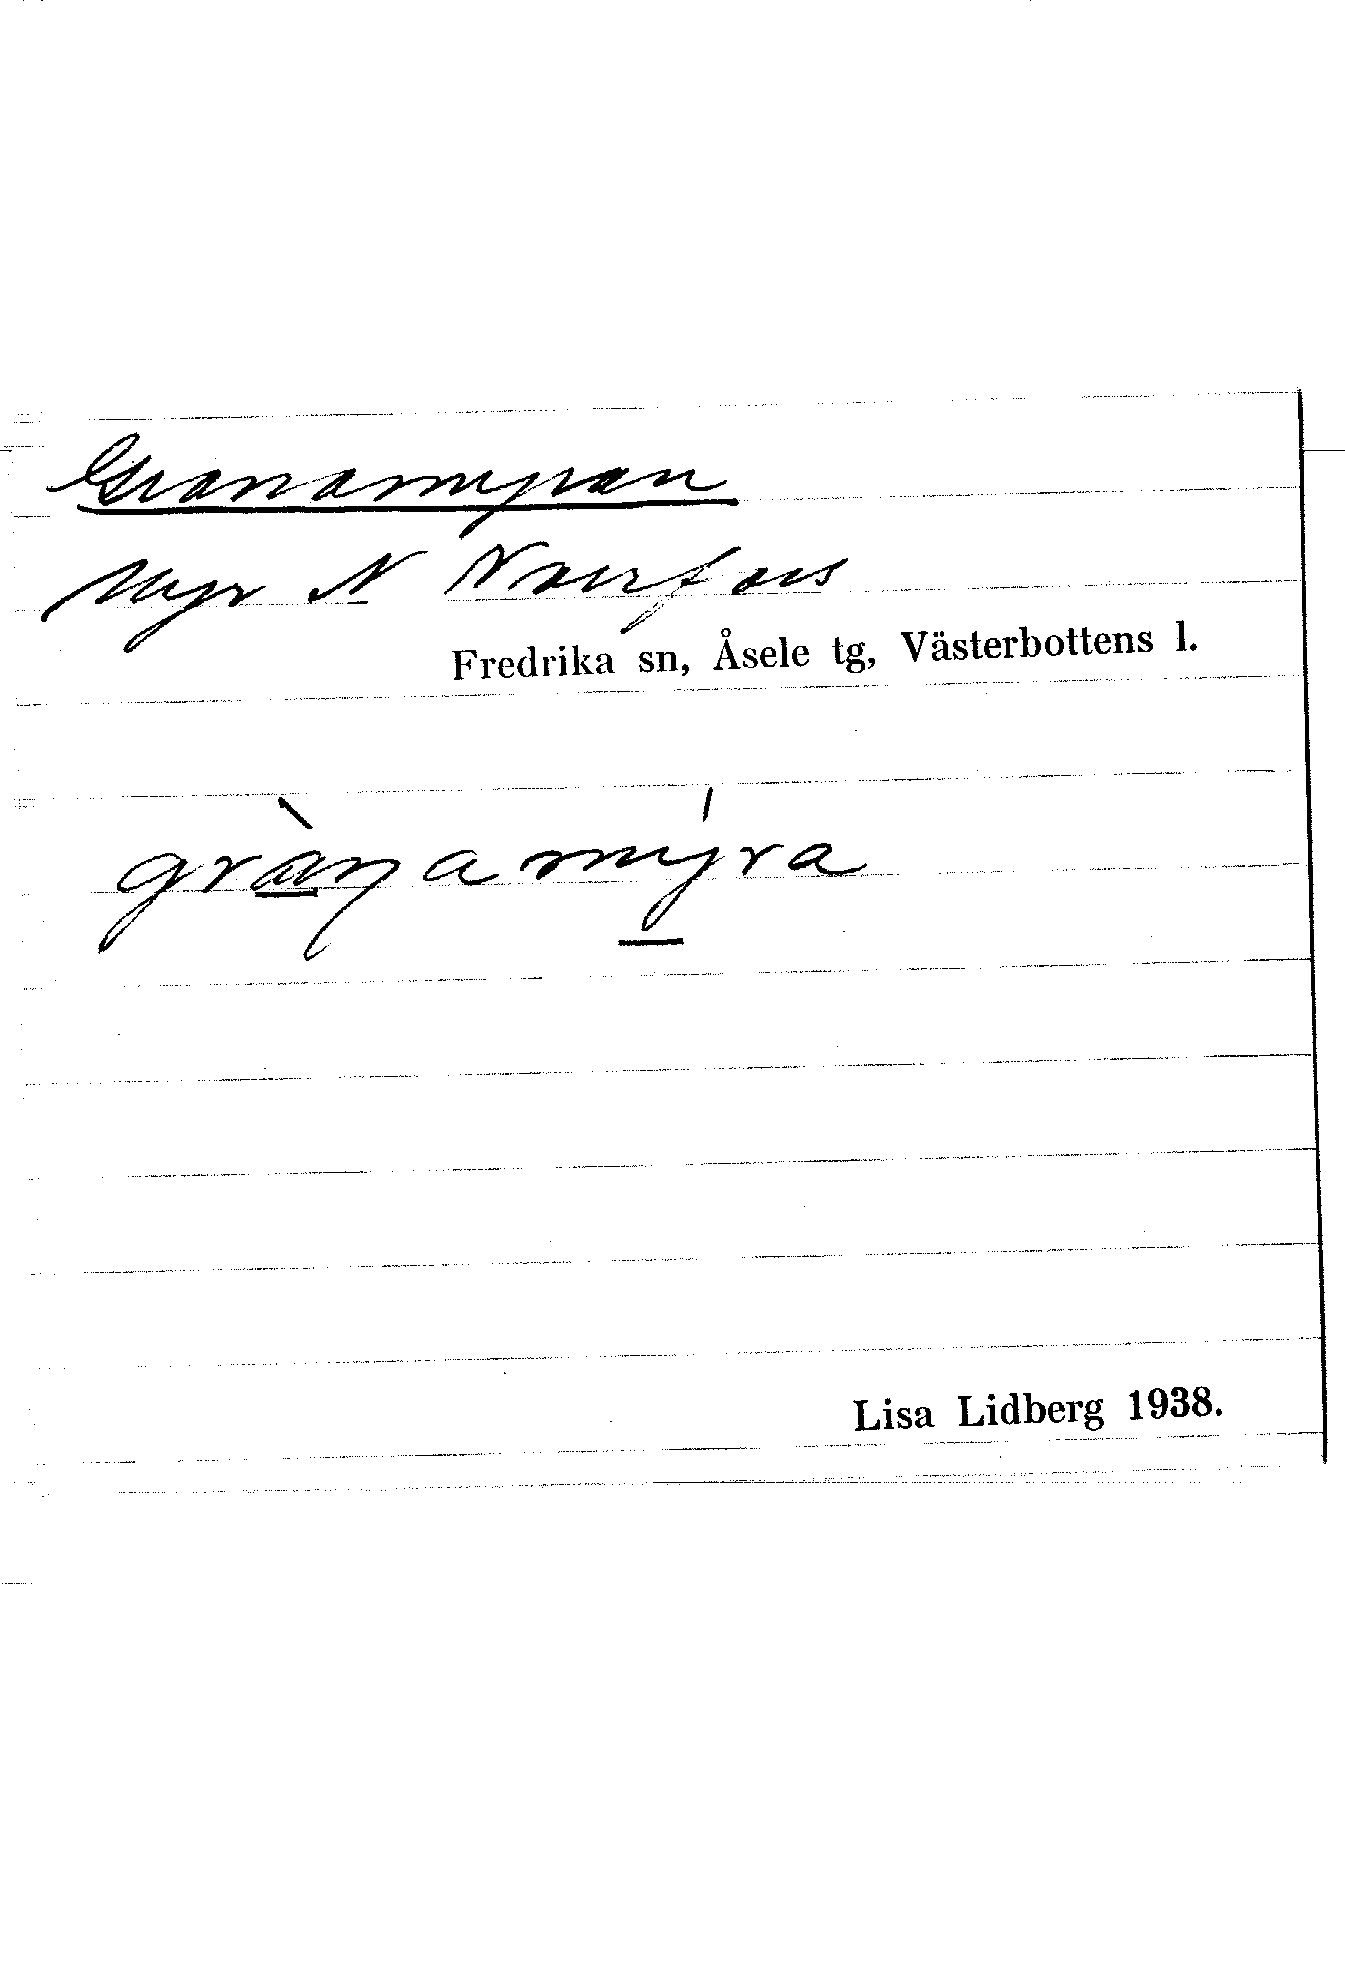 Granamyran
Myr N Norrfors
Fredrika sn, Åsele tg, Västerbottens l.
gràŋamýra
Lisa Lidberg 1938.